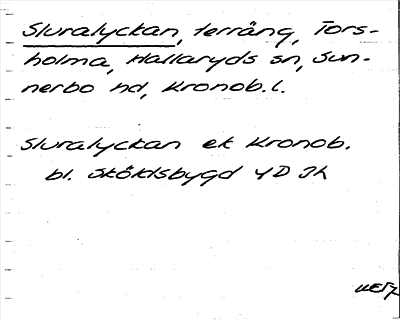 Sluralyckan, terräng, Tors-
holma, Hallaryds sn, Sun-
nerbo hd, Kronob. l.
Sluralyckan ek Kronob.
bl. Sköldsbygd 4D Jh